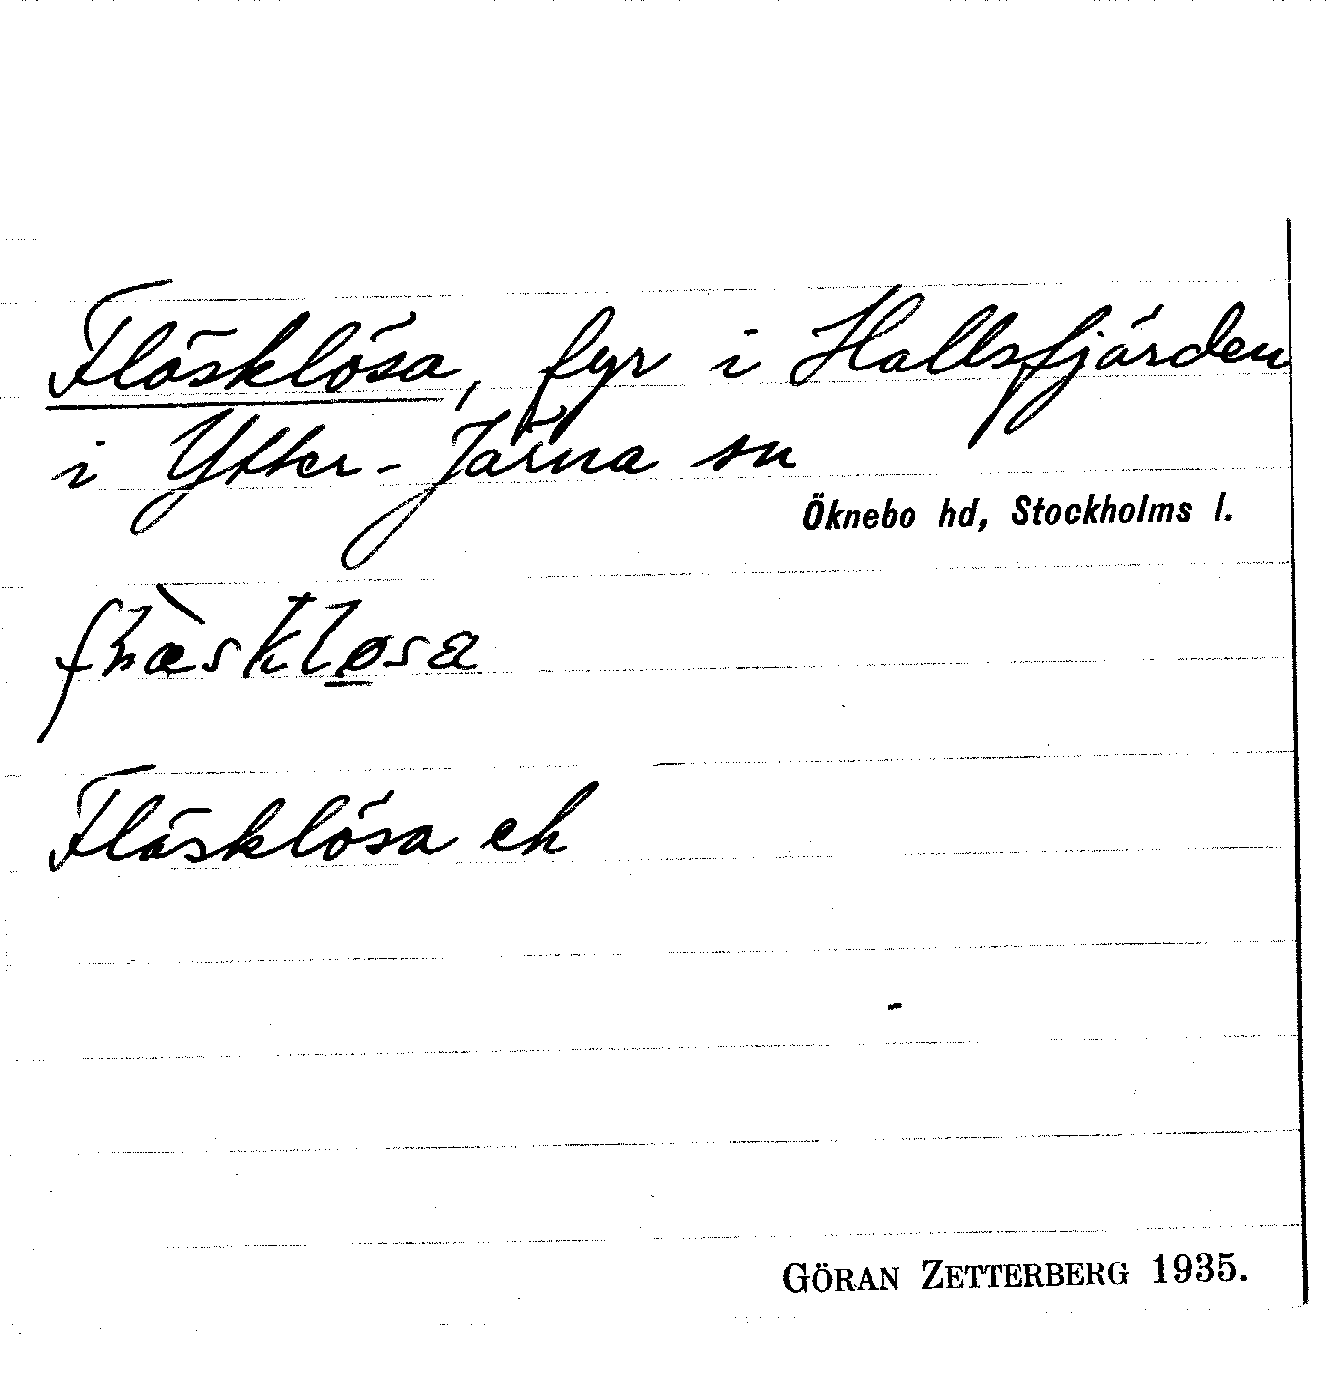 Fläsklösa, fyr i Hallsfjärden
i Ytter-Järna sn
Öknebo hd, Stockholms l.
flæ̀skløsa
Fläsklösa ek
GÖRAN ZETTERBERG 1935.